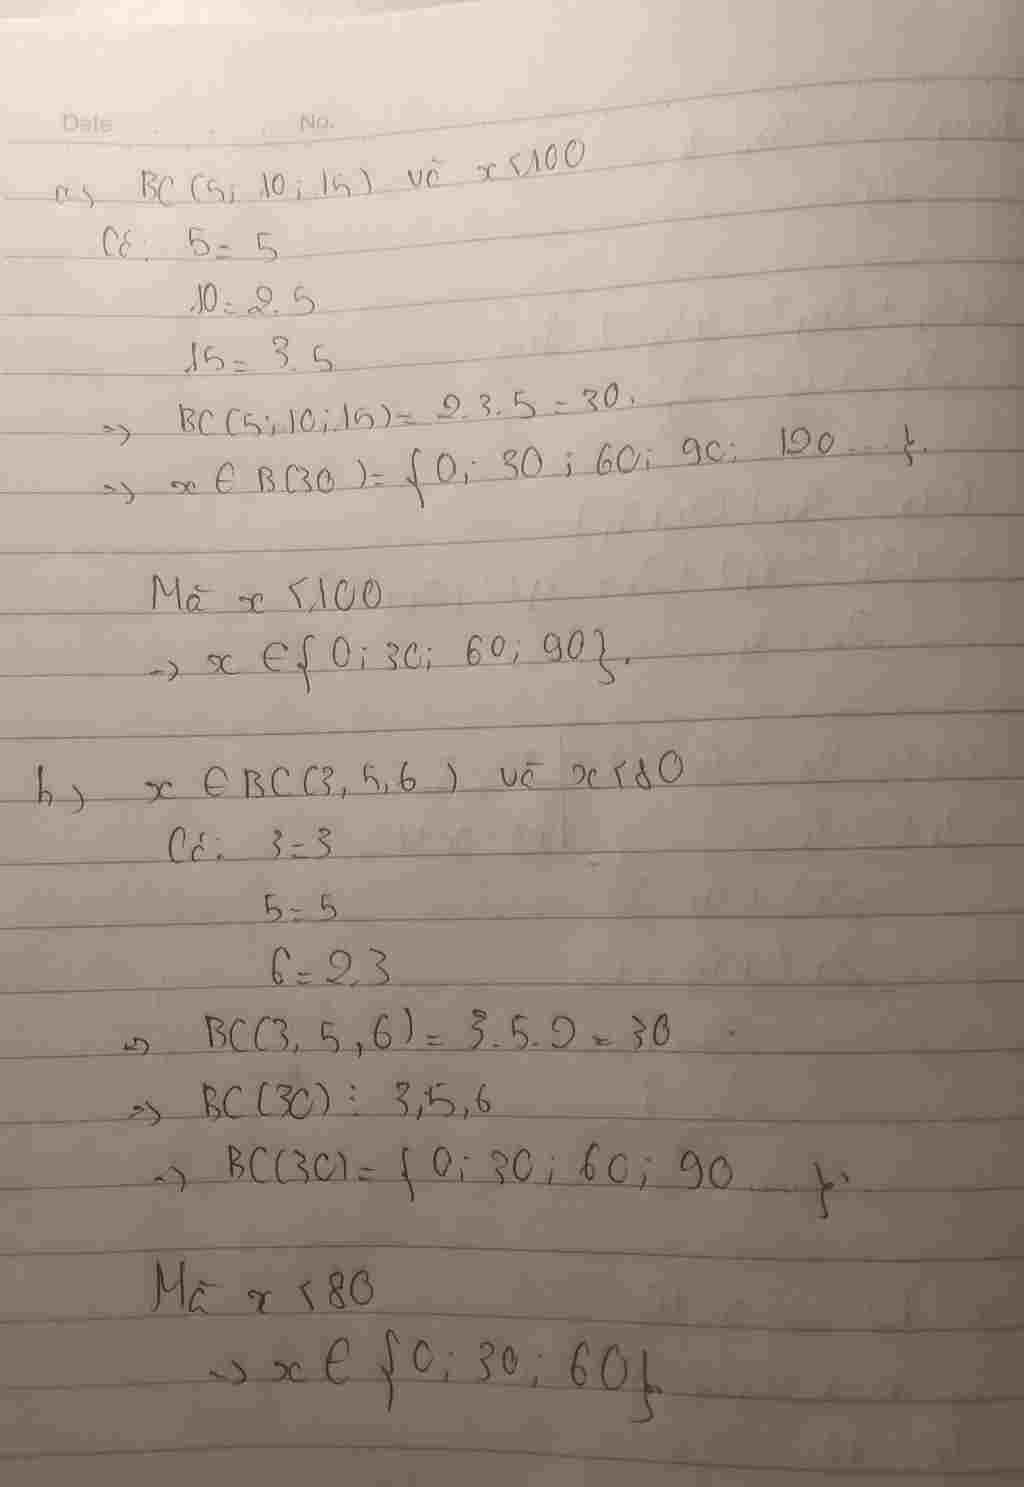 Date No.
a) BC (5; 10; 15) và x < 100
Có: 5 = 5
10 = 2.5
15 = 3.5
=> BC(5; 10; 15) = 2.3.5 = 30.
=> x ∈ B(30) = {0; 30; 60; 90; 120 ... }.
Mà x < 100
=> x ∈ {0; 30; 60; 90}.
b) x ∈ BC(3, 5, 6) và x < 80
Có: 3 = 3
5 = 5
6 = 2.3
=> BC(3, 5, 6) = 3.5.2 = 30
=> BC(30) ⋮ 3, 5, 6
=> BC(30) = {0; 30; 60; 90 ... }.
Mà x < 80
=> x ∈ {0; 30; 60}